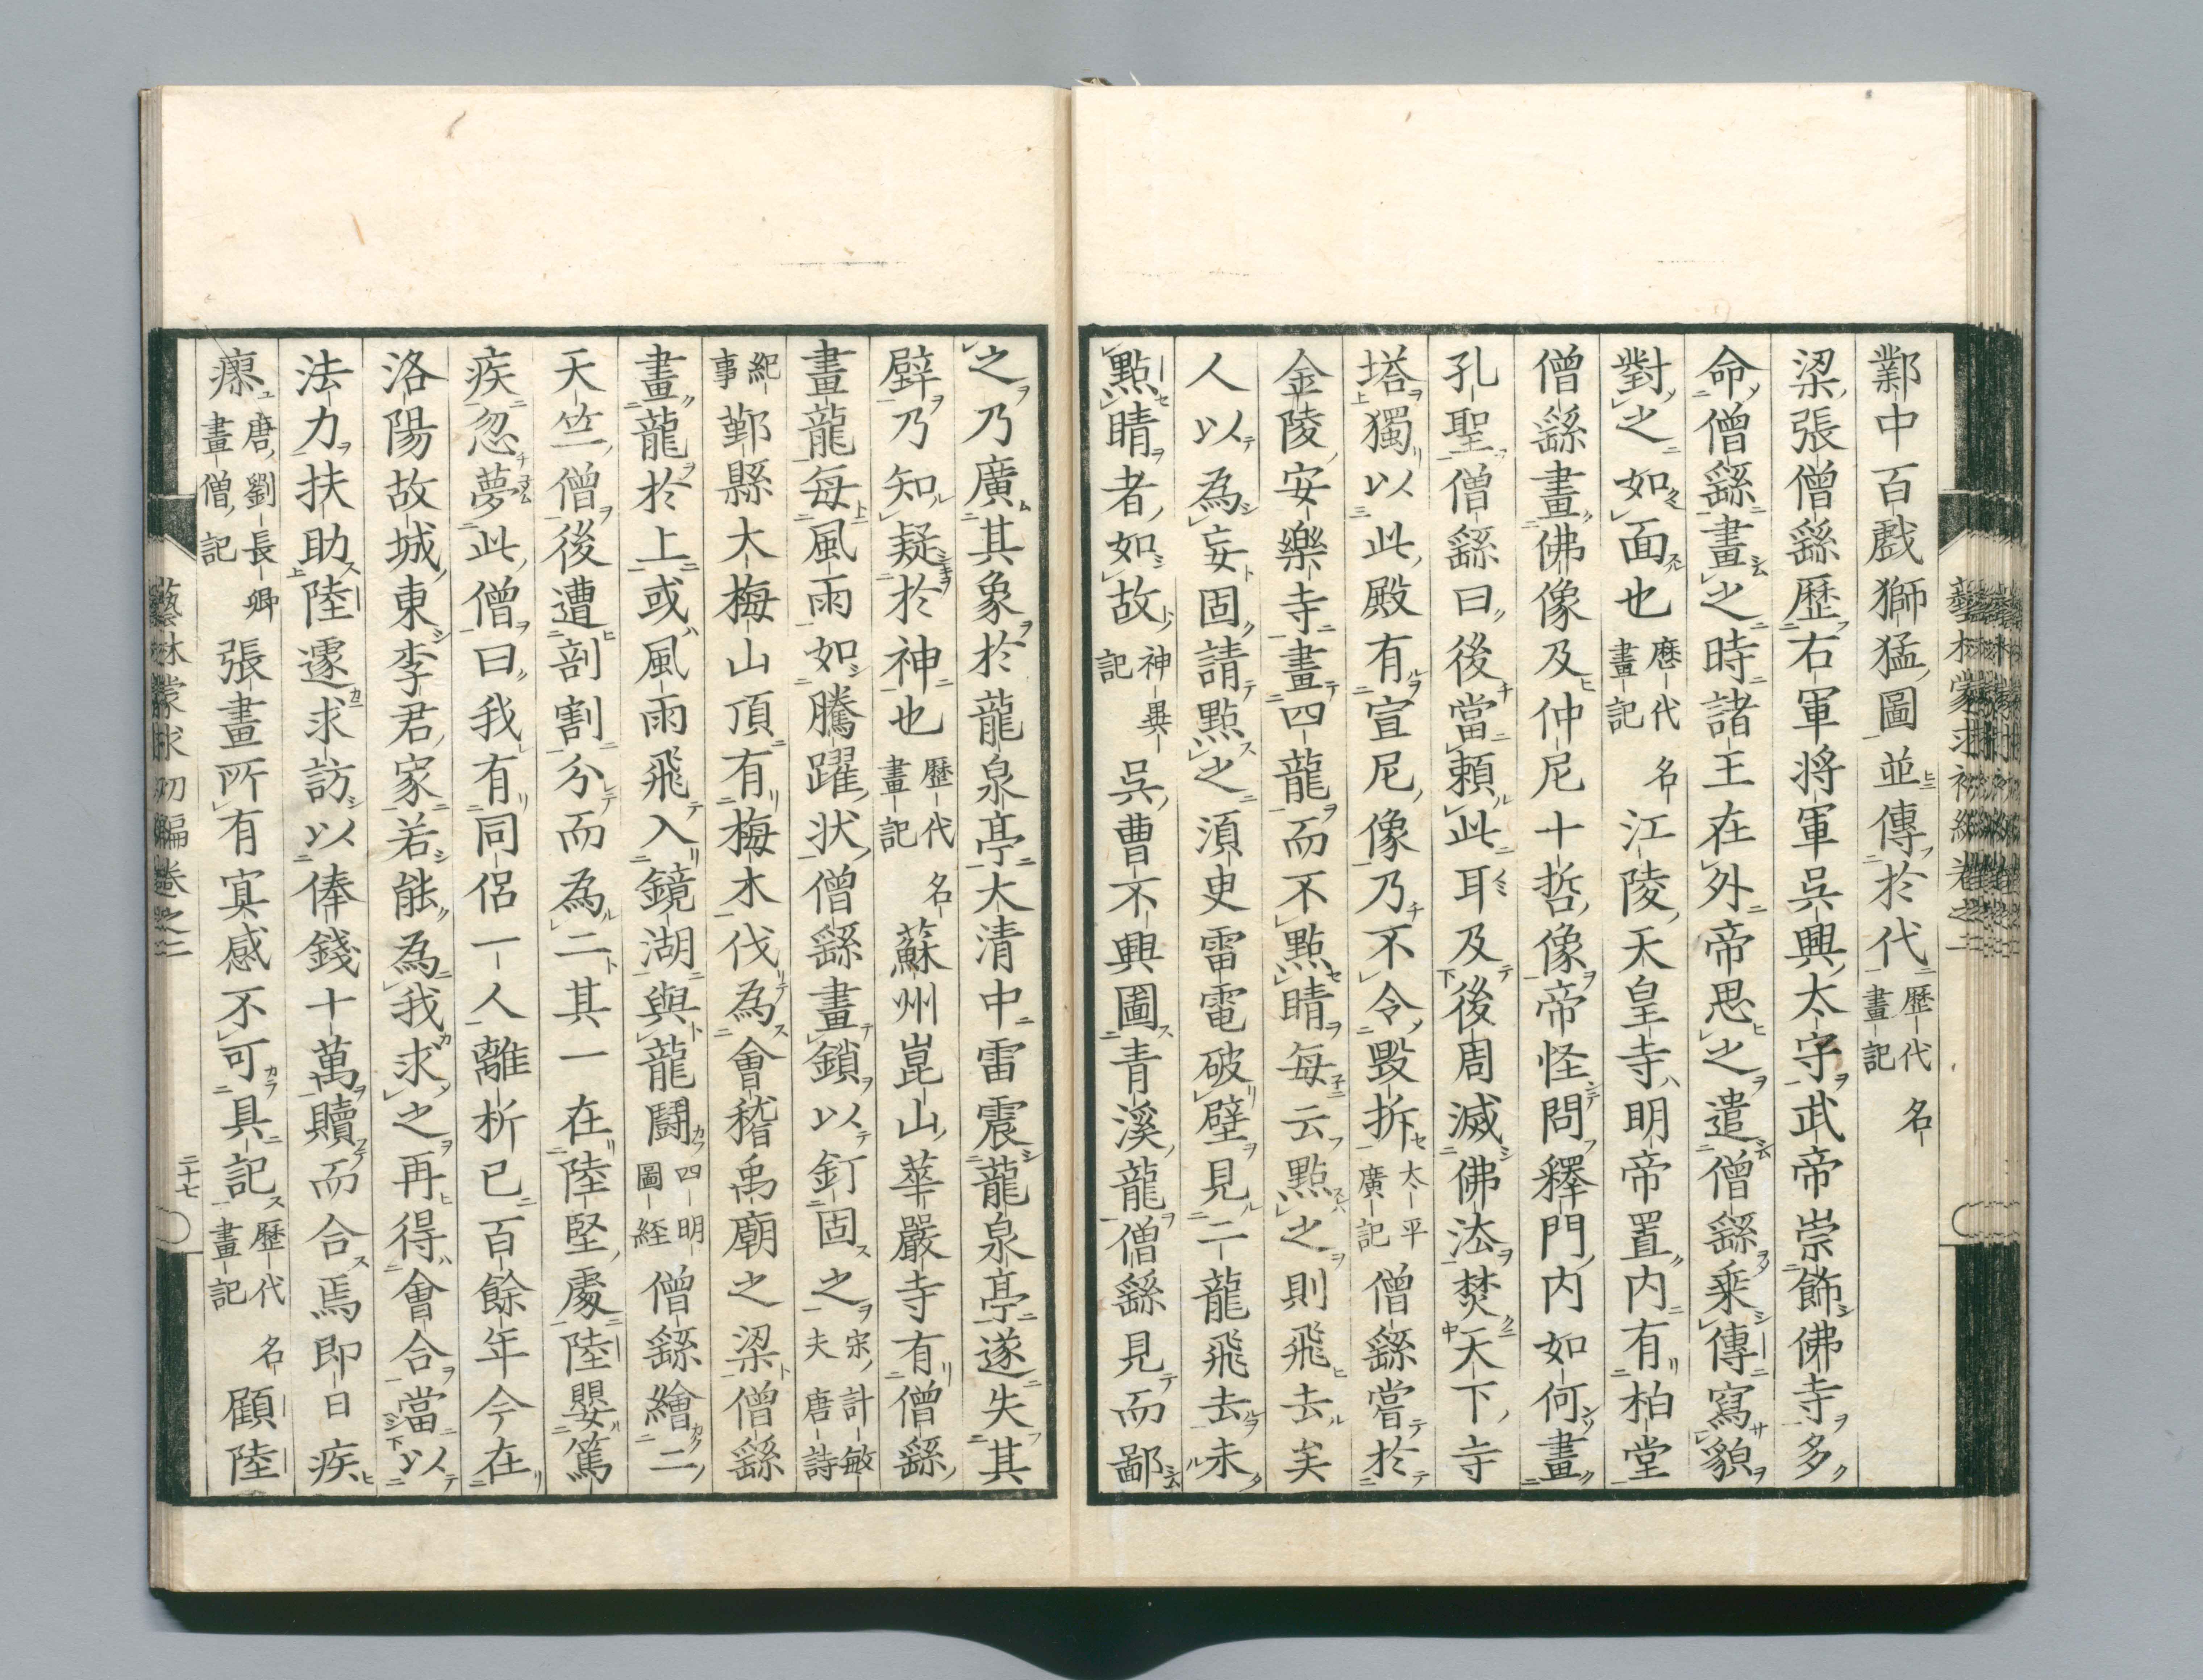 鄴中百戲獅猛圖並傳於代歷代名畫記
梁張僧繇歷右軍将軍吳興太守武帝崇飾佛寺多
命僧繇畫之時諸王在外帝思之遣僧繇乘傳寫貌
對之如面也歷代名畫記江陵天皇寺明帝置内有柏堂
僧繇畫佛像及仲尼十哲像帝怪問釋門内如何畫
孔聖僧繇曰後當頼此耳及後周滅佛法焚天下寺
塔獨以此殿有宣尼像乃不令毀拆太平廣記僧繇嘗於
金陵安樂寺畫四龍而不點睛每云點之則飛去矣
人以為妄固請點之湏史雷電破壁見二龍飛去未
點睛者如故神異記吳曹不興圖青溪龍僧繇見而鄙
之乃廣其象於龍泉亭大清中雷震龍泉亭遂失其
壁乃知疑於神也歷代名畫記蘇州崑山華嚴寺有僧繇
畫龍每風雨如騰躍状僧繇畫鎖以釘固之宋計敏夫唐詩
紀事鄞縣大梅山頂有梅木伐為會稽禹廟之梁僧繇
畫龍於上或風雨飛入鏡湖與龍闘四明圖経僧繇繪二
天竺僧後遭剖割分而為二其一在陸堅處陸嬰篤
疾忽夢此僧曰我有同侶一人離析已百餘年今在
洛陽故城東李君家若能為我求之再得會合當以
法力扶助陸遽求訪以俸錢十萬贖而合焉即日疾
瘳唐劉長卿畫僧記張畫所有寘感不可具記歷代名畫記顧陸
藝林蒙求初編巻之二
二十七